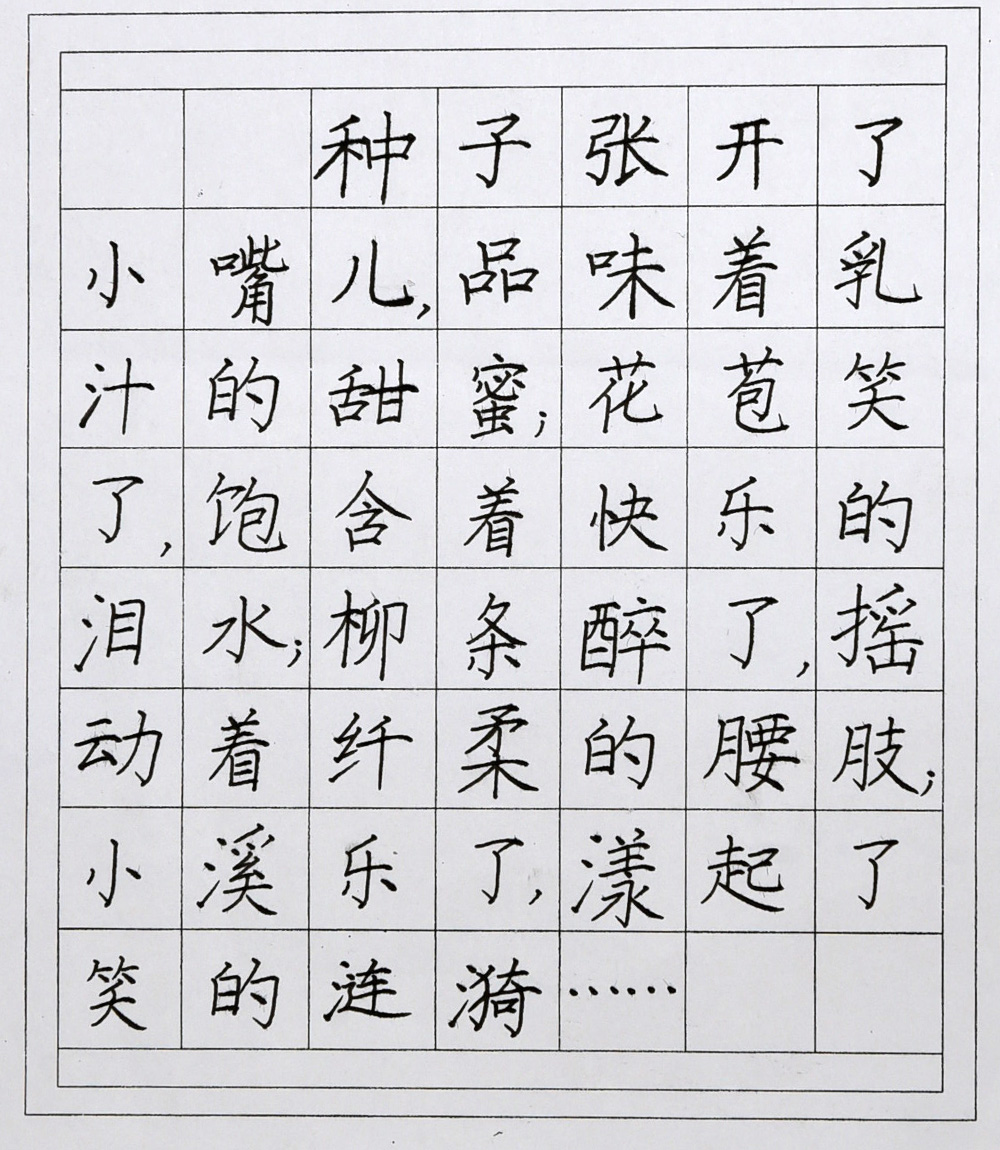 种子张开了
小嘴儿,品味着乳
汁的甜蜜;花苞笑
了,饱含着快乐的
泪水;柳条醉了,摇
动着纤柔的腰肢;
小溪乐了,漾起了
笑的涟漪……